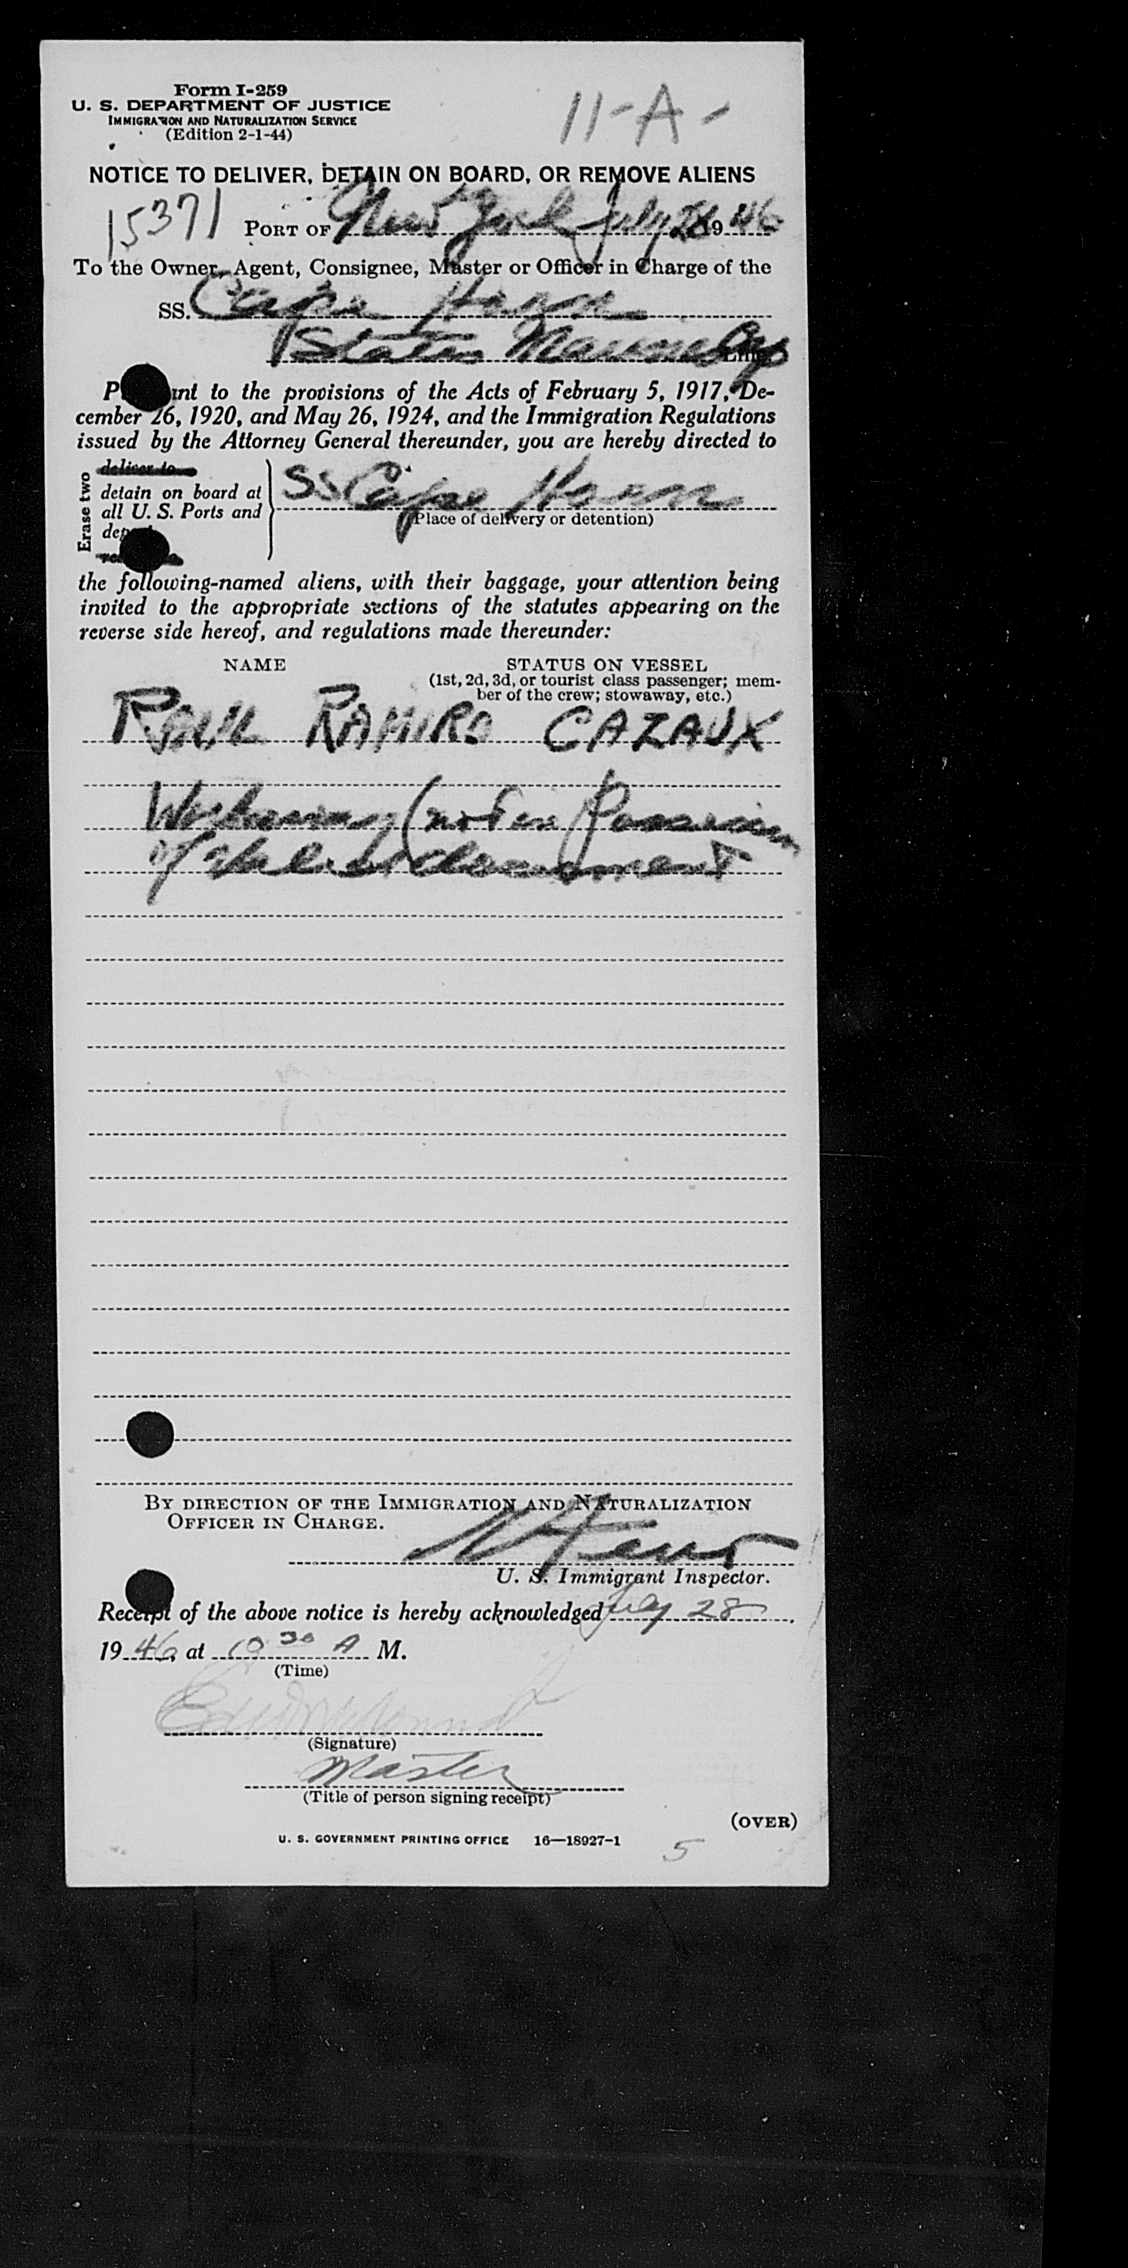 Form I-259
U. S. DEPARTMENT OF JUSTICE
IMMIGRATION AND NATURALIZATION SERVICE
(Edition 2-1-44)
11-A-
NOTICE TO DELIVER, DETAIN ON BOARD, OR REMOVE ALIENS
15371
PORT OF New York July 28 1946
To the Owner, Agent, Consignee, Master or Officer in Charge of the
SS. Cape Horn
States Marine Line
P nt to the provisions of the Acts of February 5, 1917, De-
cember 26, 1920, and May 26, 1924, and the Immigration Regulations
issued by the Attorney General thereunder, you are hereby directed to
Erase two
deliver to
detain on board at
all U. S. Ports and
dep
SS Cape Horn
(Place of delivery or detention)
the following-named aliens, with their baggage, your attention being
invited to the appropriate sections of the statutes appearing on the
reverse side hereof, and regulations made thereunder:
NAME
STATUS ON VESSEL
(1st, 2d, 3d, or tourist class passenger; mem-
ber of the crew; stowaway, etc.)
RAUL RAMIRO CAZAUX
Workaway (not in possession
of valid document
BY DIRECTION OF THE IMMIGRATION AND NATURALIZATION
OFFICER IN CHARGE.
U. S. Immigrant Inspector.
Receipt of the above notice is hereby acknowledged July 28
1946, at 10 30 A M.
(Time)
(Signature)
Master
(Title of person signing receipt)
(OVER)
U. S. GOVERNMENT PRINTING OFFICE 16—18927-1
5